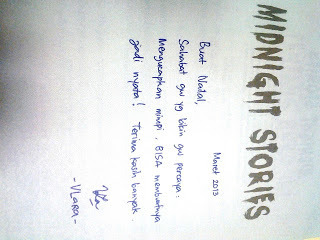 MIDNIGHT STORIES
Maret 2013
Buat Nadal,
Sahabat gw yg bikin gw percaya:
Mengucapkan mimpi, BISA membuatnya
jadi nyata! Terima kasih banyak.
-VLara-